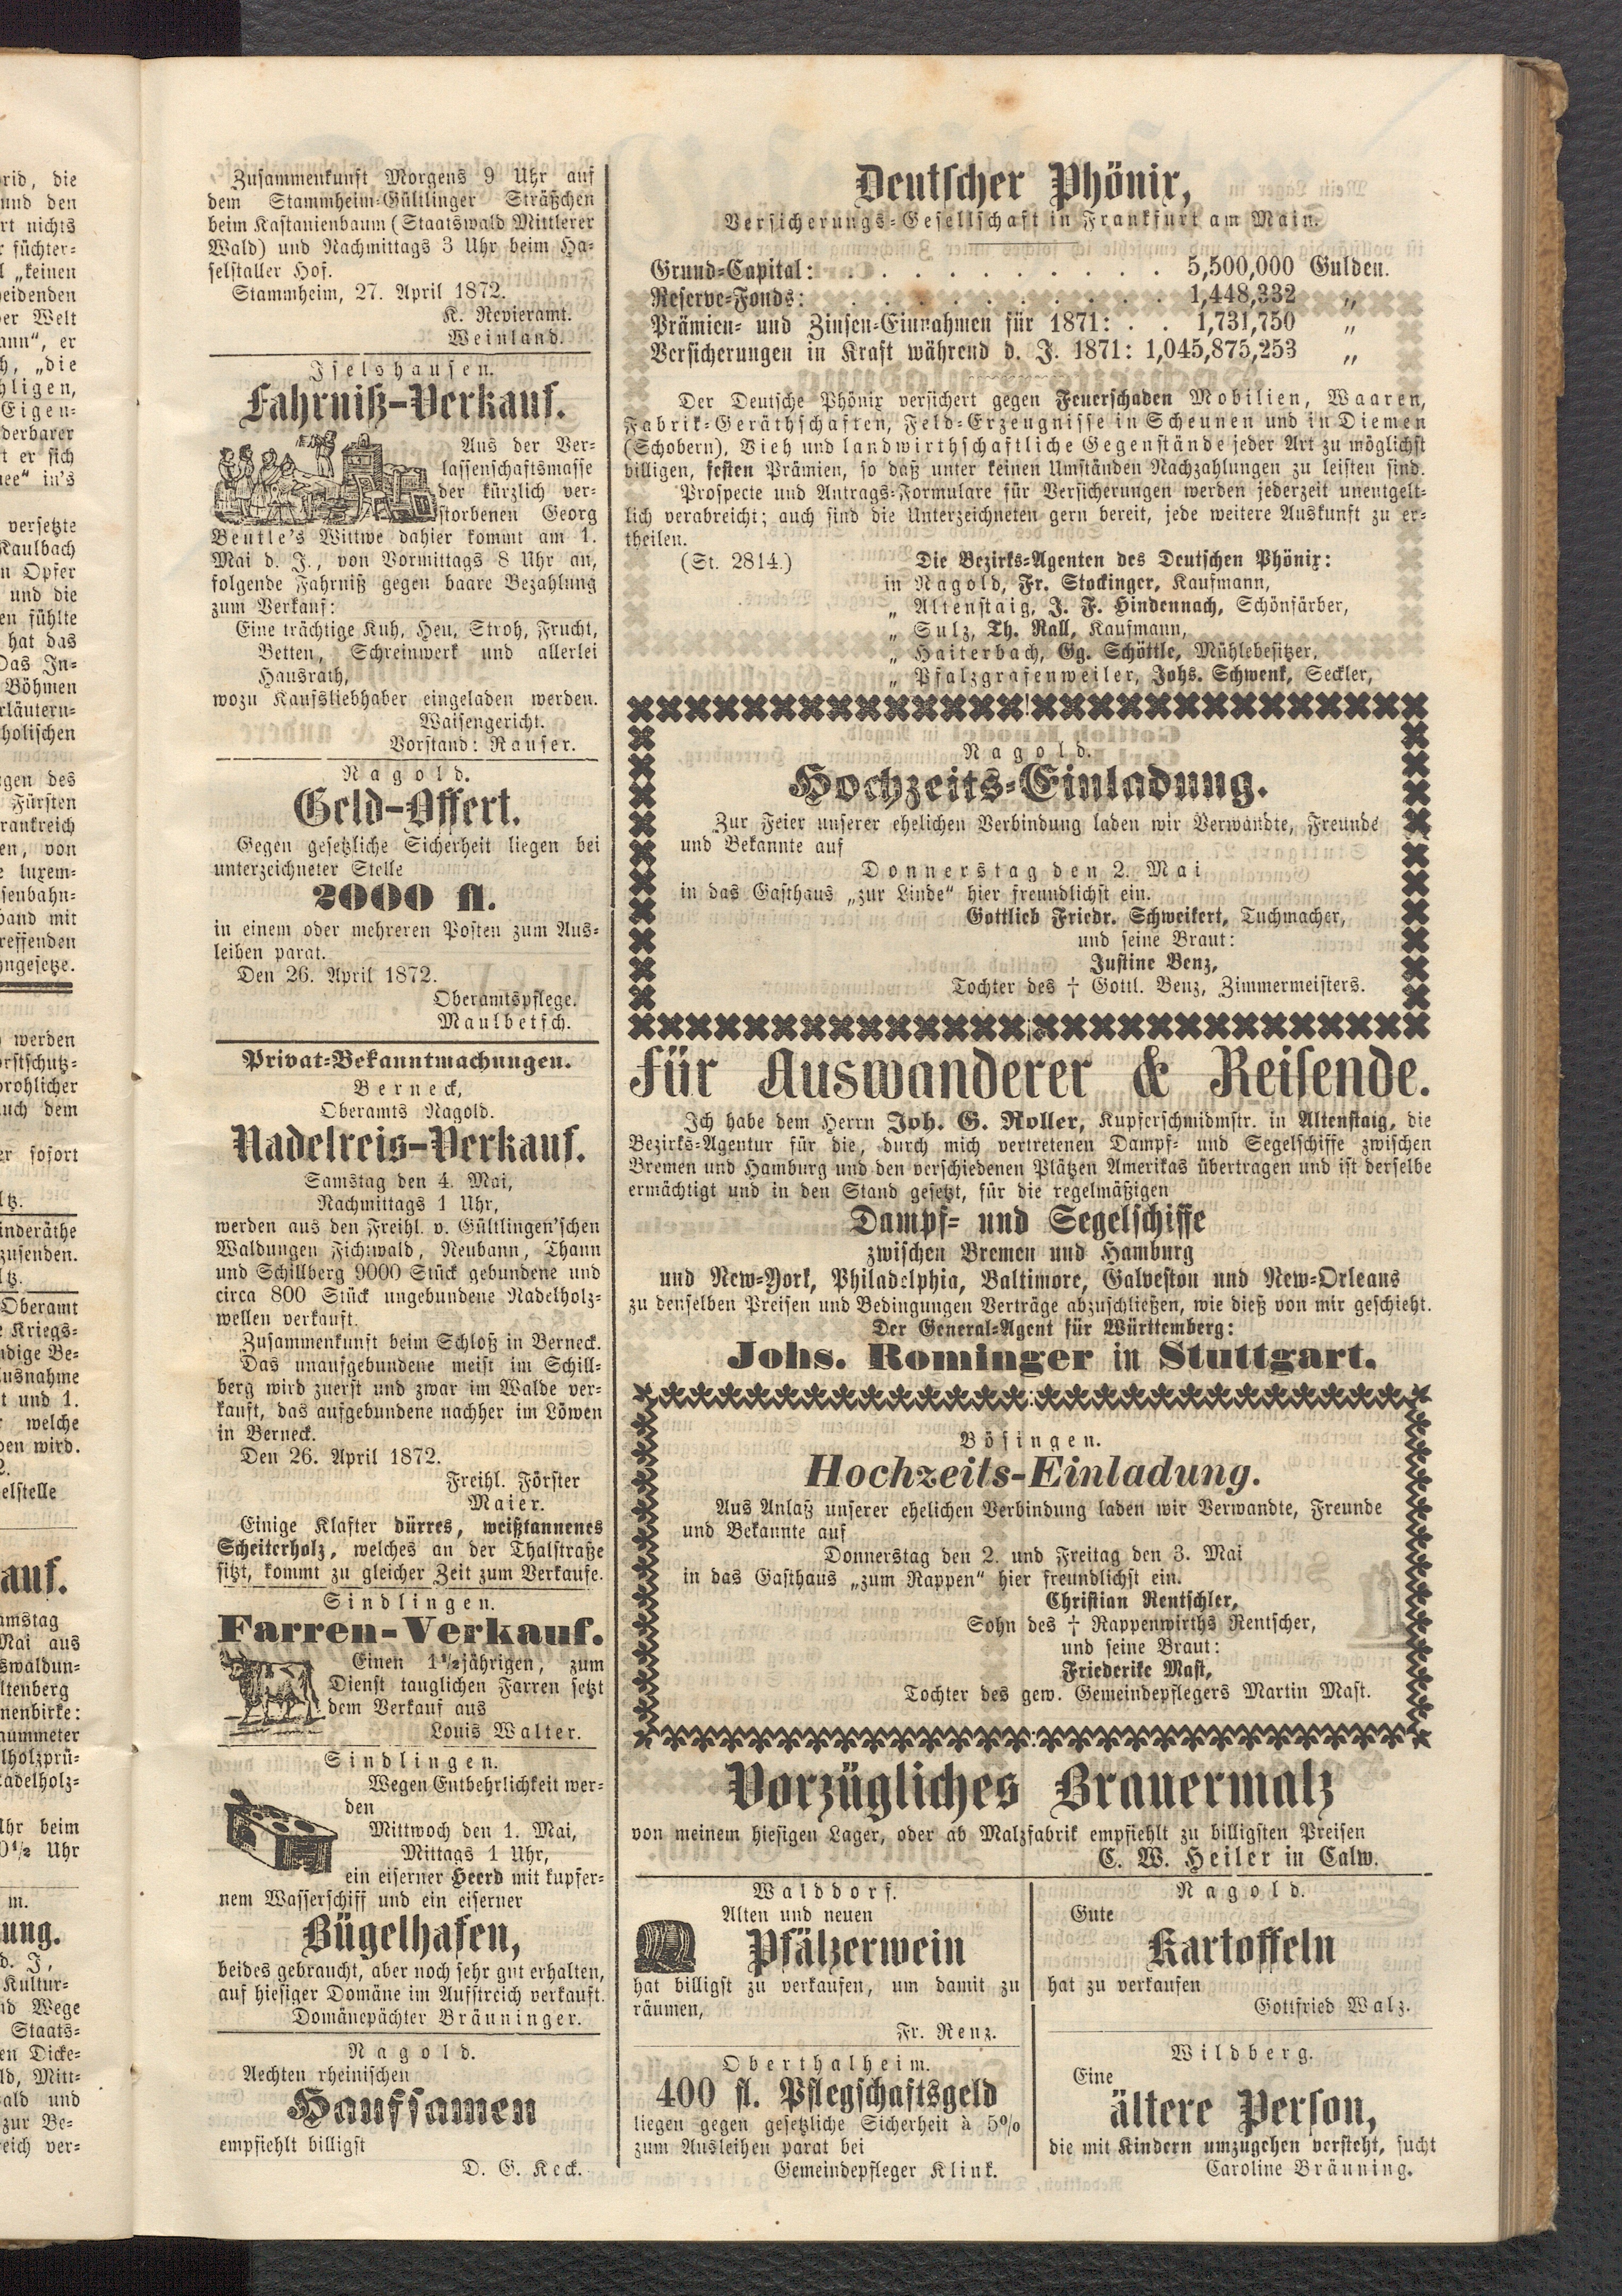 rid, die
und den
rt nichts
r füchter-
l „keinen
eidenden
er Welt
ann“, er
h, „die
hligen,
Eigen-
derbarer
t er sich
nee“ in's
versetzte
Kaulbach
n Opfer
und die
en fühlte
hat das
Das In-
Böhmen
rläutern-
holischen
gen des
Fürsten
rankreich
en, von
e luxem-
senbahn-
band mit
reffenden
ngesetze.
werden
rstschutz-
rohlicher
uch dem
er sofort
ltz.
inderäthe
zusenden.
ltz.
Oberamt
e Kriegs-
ndige Be-
usnahme
t und 1.
r welche
ben wird.
2.
elstelle
auf.
amstag
Mai aus
swaldun-
ltenberg
nenbirke:
aummeter
lholzprü-
adelholz-
Uhr beim
0½ Uhr
m.
ung.
d. J.,
Kultur-
nd Wege
Staats-
en Dicke-
ld, Mitt-
ald und
zur Be-
eich ver-
Zusammenkunft Morgens 9 Uhr auf
dem Stammheim-Gültlinger Sträßchen
beim Kastanienbaum (Staatswald Mittlerer
Wald) und Nachmittags 3 Uhr beim Ha-
selstaller Hof.
Stammheim, 27. April 1872.
K. Revieramt.
Weinland.
Iselshausen.
Fahrniß-Verkauf.
Aus der Ver-
lassenschaftsmasse
der kürzlich ver-
storbenen Georg
Beutle's Wittwe dahier kommt am 1.
Mai d. J., von Vormittags 8 Uhr an,
folgende Fahrniß gegen baare Bezahlung
zum Verkauf:
Eine trächtige Kuh, Heu, Stroh, Frucht,
Betten, Schreinwerk und allerlei
Hausrath,
wozu Kaufsliebhaber eingeladen werden.
Waisengericht.
Vorstand: Rauser.
Nagold.
Geld-Offert.
Gegen gesetzliche Sicherheit liegen bei
unterzeichneter Stelle
2000 fl.
in einem oder mehreren Posten zum Aus-
leihen parat.
Den 26. April 1872.
Oberamtspflege.
Maulbetsch.
Privat-Bekanntmachungen.
Berneck,
Oberamts Nagold.
Nadelreis-Verkauf.
Samstag den 4. Mai,
Nachmittags 1 Uhr,
werden aus den Freihl. v. Gültlingen'schen
Waldungen Fichtwald, Neubann, Thann
und Schillberg 9000 Stück gebundene und
circa 800 Stück ungebundene Nadelholz-
wellen verkauft.
Zusammenkunft beim Schloß in Berneck.
Das unaufgebundene meist im Schill-
berg wird zuerst und zwar im Walde ver-
kauft, das aufgebundene nachher im Löwen
in Berneck.
Den 26. April 1872.
Freihl. Förster
Maier.
Einige Klafter dürres, weißtannenes
Scheiterholz, welches an der Thalstraße
sitzt, kommt zu gleicher Zeit zum Verkaufe.
Sindlingen.
Farren-Verkauf.
Einen 1½jährigen, zum
Dienst tauglichen Farren setzt
dem Verkauf aus
Louis Walter.
Sindlingen.
Wegen Entbehrlichkeit wer-
den
Mittwoch den 1. Mai,
Mittags 1 Uhr,
ein eiserner Heerd mit kupfer-
nem Wasserschiff und ein eiserner
Bügelhafen,
beides gebraucht, aber noch sehr gut erhalten,
auf hiesiger Domäne im Aufstreich verkauft.
Domänepächter Bräuninger.
Nagold.
Aechten rheinischen
Hanfsamen
empfiehlt billigst
D. G. Keck.
Deutscher Phönix,
Versicherungs-Gesellschaft in Frankfurt am Main.
Grund-Capital: . . . . . . . . . . . 5,500,000 Gulden.
Reserve-Fonds: . . . . . . . . . . . 1,448,332 „
Prämien- und Zinsen-Einnahmen für 1871: . . 1,731,750 „
Versicherungen in Kraft während d. J. 1871: 1,045,875,253 „
Der Deutsche Phönix versichert gegen Feuerschaden Mobilien, Waaren,
Fabrik-Geräthschaften, Feld-Erzeugnisse in Scheunen und in Diemen
(Schobern), Vieh und landwirthschaftliche Gegenstände jeder Art zu möglichst
billigen, festen Prämien, so daß unter keinen Umständen Nachzahlungen zu leisten sind.
Prospecte und Antrags-Formulare für Versicherungen werden jederzeit unentgelt-
lich verabreicht; auch sind die Unterzeichneten gern bereit, jede weitere Auskunft zu er-
theilen.
(St. 2814.) Die Bezirks-Agenten des Deutschen Phönix:
in Nagold, Fr. Stockinger, Kaufmann,
„ Altenstaig, J. F. Hindennach, Schönfärber,
„ Sulz, Th. Rall, Kaufmann,
„ Haiterbach, Gg. Schöttle, Mühlebesitzer,
„ Pfalzgrafenweiler, Johs. Schwenk, Seckler,
Nagold.
Hochzeits-Einladung.
Zur Feier unserer ehelichen Verbindung laden wir Verwandte, Freunde
und Bekannte auf
Donnerstag den 2. Mai
in das Gasthaus „zur Linde“ hier freundlichst ein.
Gottlieb Friedr. Schweikert, Tuchmacher,
und seine Braut:
Justine Benz,
Tochter des † Gottl. Benz, Zimmermeisters.
Für Auswanderer & Reisende.
Ich habe dem Herrn Joh. G. Roller, Kupferschmidmstr. in Altenstaig, die
Bezirks-Agentur für die, durch mich vertretenen Dampf- und Segelschiffe zwischen
Bremen und Hamburg und den verschiedenen Plätzen Amerikas übertragen und ist derselbe
ermächtigt und in den Stand gesetzt, für die regelmäßigen
Dampf- und Segelschiffe
zwischen Bremen und Hamburg
und New-York, Philadelphia, Baltimore, Galveston und New-Orleans
zu denselben Preisen und Bedingungen Verträge abzuschließen, wie dieß von mir geschieht.
Der General-Agent für Württemberg:
Johs. Rominger in Stuttgart.
Bösingen.
Hochzeits-Einladung.
Aus Anlaß unserer ehelichen Verbindung laden wir Verwandte, Freunde
und Bekannte auf
Donnerstag den 2. und Freitag den 3. Mai
in das Gasthaus „zum Rappen“ hier freundlichst ein.
Christian Rentschler,
Sohn des † Rappenwirths Rentscher,
und seine Braut:
Friederike Mast,
Tochter des gew. Gemeindepflegers Martin Mast.
Vorzügliches Brauermalz
von meinem hiesigen Lager, oder ab Malzfabrik empfiehlt zu billigsten Preisen
C. W. Heiler in Calw.
Walddorf.
Alten und neuen
Pfälzerwein
hat billigst zu verkaufen, um damit zu
räumen,
Fr. Renz.
Oberthalheim.
400 fl. Pflegschaftsgeld
liegen gegen gesetzliche Sicherheit à 5%
zum Ausleihen parat bei
Gemeindepfleger Klink.
Nagold.
Gute
Kartoffeln
hat zu verkaufen
Gottfried Walz.
Wildberg.
Eine
ältere Person,
die mit Kindern umzugehen versteht, sucht
Caroline Bräuning.